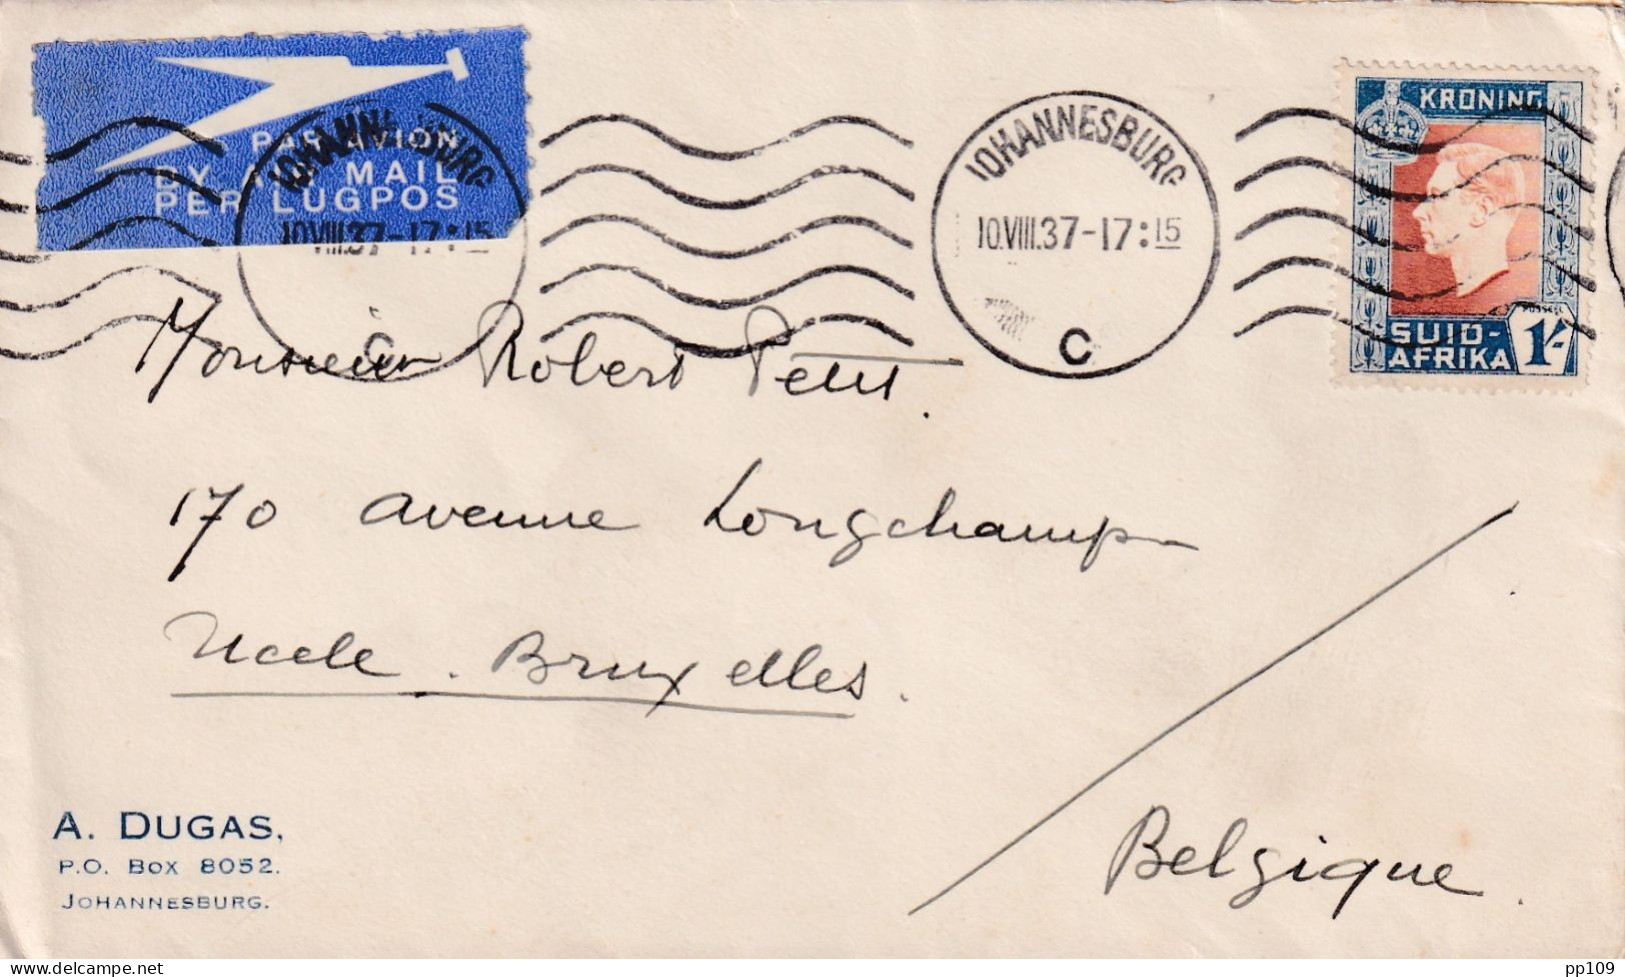 PAR AVION
BY AIR MAIL
PER LUGPOS
JOHANNESBURG
10.VIII.37-17:15
JOHANNESBURG
10.VIII.37-17:15
C
KRONING
POSSEËL
SUID-
AFRIKA 1/-
Monsieur Robert Petit.
170 avenue Longchamp
Uccle. Bruxelles.
Belgique.
A. DUGAS,
P.O. BOX 8052.
JOHANNESBURG.
pp109